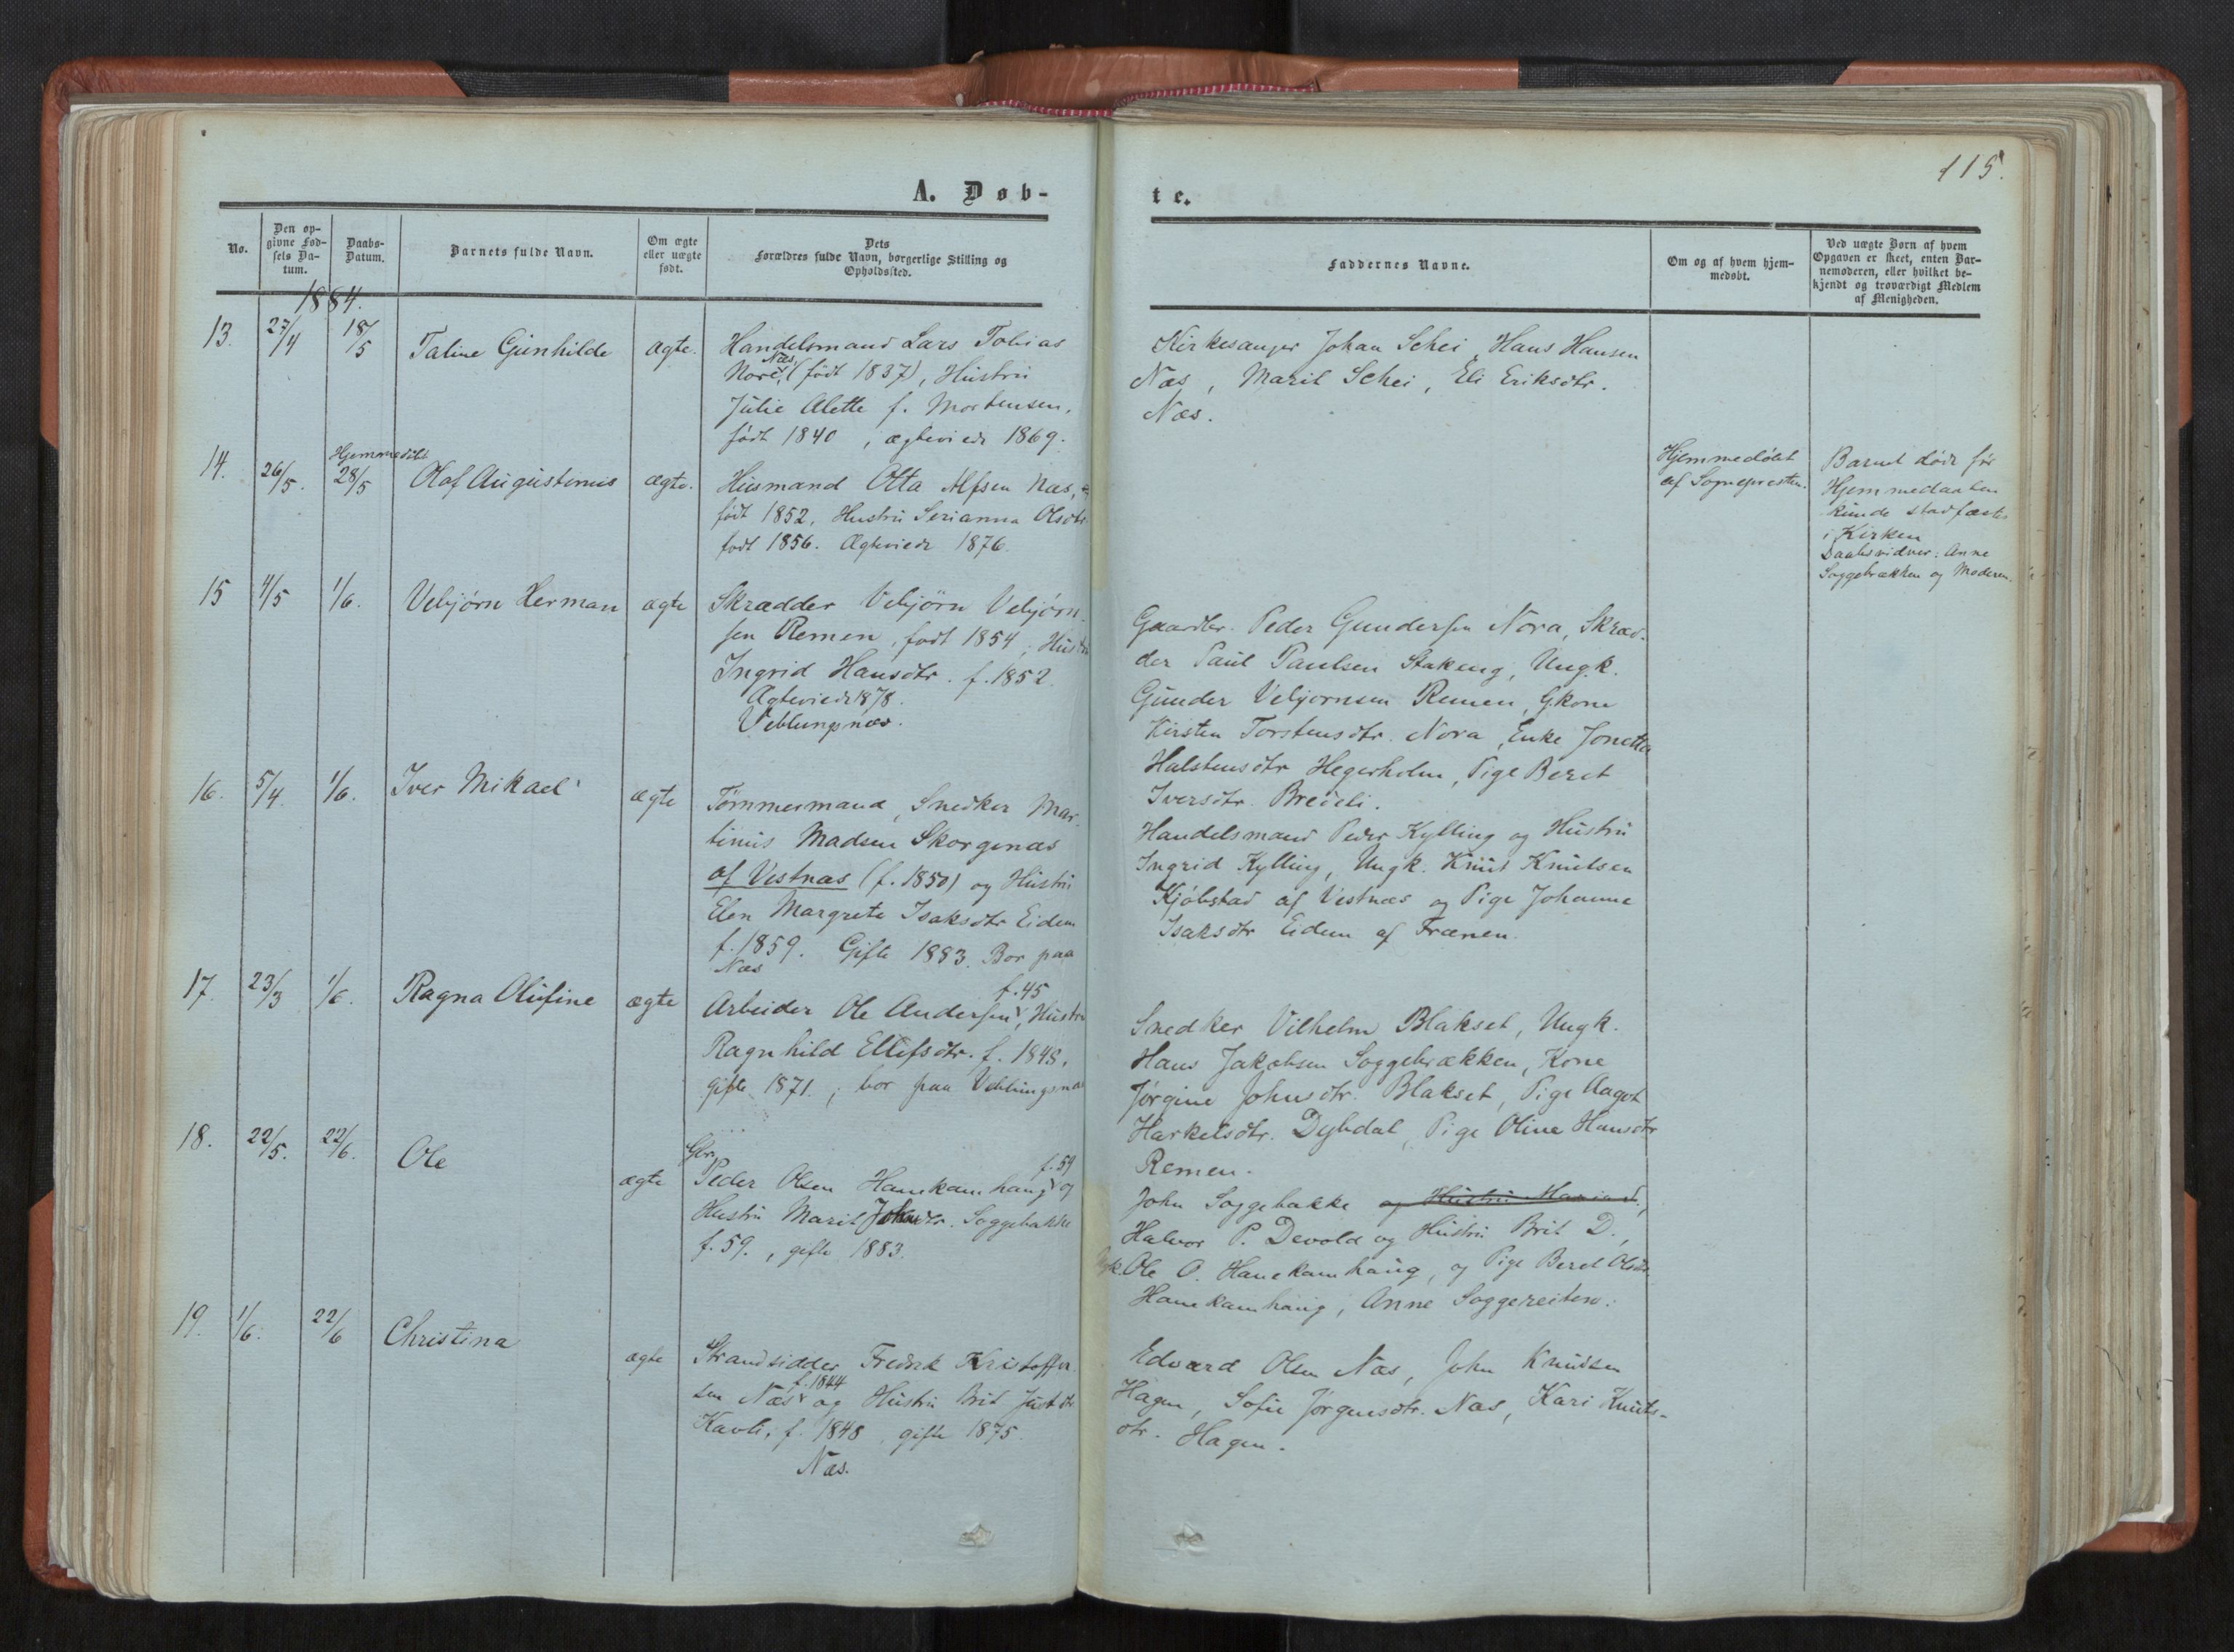 115.
A. Døb-
te.
No.
Den op-
givne Fød-
sels Da-
tum.
Daabs-
Datum.
Barnets fulde Navn.
Om ægte
eller uægte
født.
Dets
Forældres fulde Navn, borgerlige Stilling og
Opholdssted.
Faddernes Navne.
Om og af hvem hjem-
medøbt.
Ved uægte Børn af hvem
Opgaven er skeet, enten Bar-
nemoderen, eller hvilket be-
kjendt og troværdigt Medlem
af Menigheden.
1884.
13. 27/4 18/5 Taline Gunhilde ægte.
Handelsmand Lars Tobias
Næs,
Nore, (født 1837), Hustru
Julie Alette f. Mortensen,
født 1840, ægteviede 1869.
Kirkesanger Johan Schei, Hans Hansen
Næs, Marit Schei, Eli Eriksdtr.
Næs.
Hjemmedøbt
14. 26/5. 28/5 Olaf Augustinus ægte.
Husmand Otto Alfsen Næs,
født 1852, Hustru Serianna Olsdtr
født 1856. Ægteviede 1876.
Hjemmedøbt
af Sognepresten.
Barnet døde før
Hjemmedaaben
kunde stadfæstes
i Kirken
Daabsvidner: Anne
Soggebrækken og Moderen.
15 4/5 1/6. Vebjørn Herman ægte
Skrædder Vebjørn Vebjørn-
sen Remen, født 1854, Hustru
Ingrid Hansdtr. f. 1852.
Ægteviede 1878.
Veblungsnæs.
Gaardbr. Peder Gundersen Nora, Skræd-
der Paul Paulsen Stakeng, Ungk.
Gunder Vebjørnsen Remen, Gkone
Kirsten Torstensdtr. Nora, Enke Jonetta
Halstensdtr Hegerholm, Pige Beret
Iversdtr. Bredeli.
16. 5/4. 1/6. Iver Mikael ægte
Tømmermand, Snedker Mar-
tinus Madsen Skorgenæs
af Vestnæs (f. 1850) og Hustru
Elen Margrete Isaksdtr Eidem
f. 1859. Gifte 1883. Bor paa
Næs
Handelsmand Peder Kylling og Hustru
Ingrid Kylling, Ungk. Knut Knutsen
Kjøbstad af Vestnæs og Pige Johanne
Isaksdtr Eidem af Frænen.
17. 23/3 1/6. Ragna Olufine ægte
f. 45
Arbeider Ole Andersen, Hustru
Ragnhild Ellefsdtr. f. 1848,
gifte 1871.; bor paa Veblungsnæs
Snedker Vilhelm Blakset, Ungk.
Hans Jakobsen Soggebrækken, Kone
Jørgine Johnsdtr. Blakset, Pige Aagot
Harkelsdtr. Dybdal, Pige Oline Hansdtr
Remen.
18. 22/5. 22/6. Ole ægte
Gbr. f. 59
Peder Olsen Hanekamhaug og
Hustru Marit Johnsdtr. Soggebakke
f. 59., gifte 1883.
John Soggebakke og Hustru
Halvor P. Devold og Hustru Brit D.,
Ungk. Ole O. Hanekamhaug, og Pige Beret Olsdtr.
Hanekamhaug, Anne Soggereiten.
19. 1/6. 22/6 Christina ægte
Strandsidder Fredrik Kristoffer-
f. 1844
sen Næs og Hustru Brit Justdtr
Kavli, f. 1848, gifte 1875.
Næs.
Edvard Olsen Næs, John Knudsen
Hagen, Sofie Jørgensdtr. Næs, Kari Knuts-
dtr. Hagen.